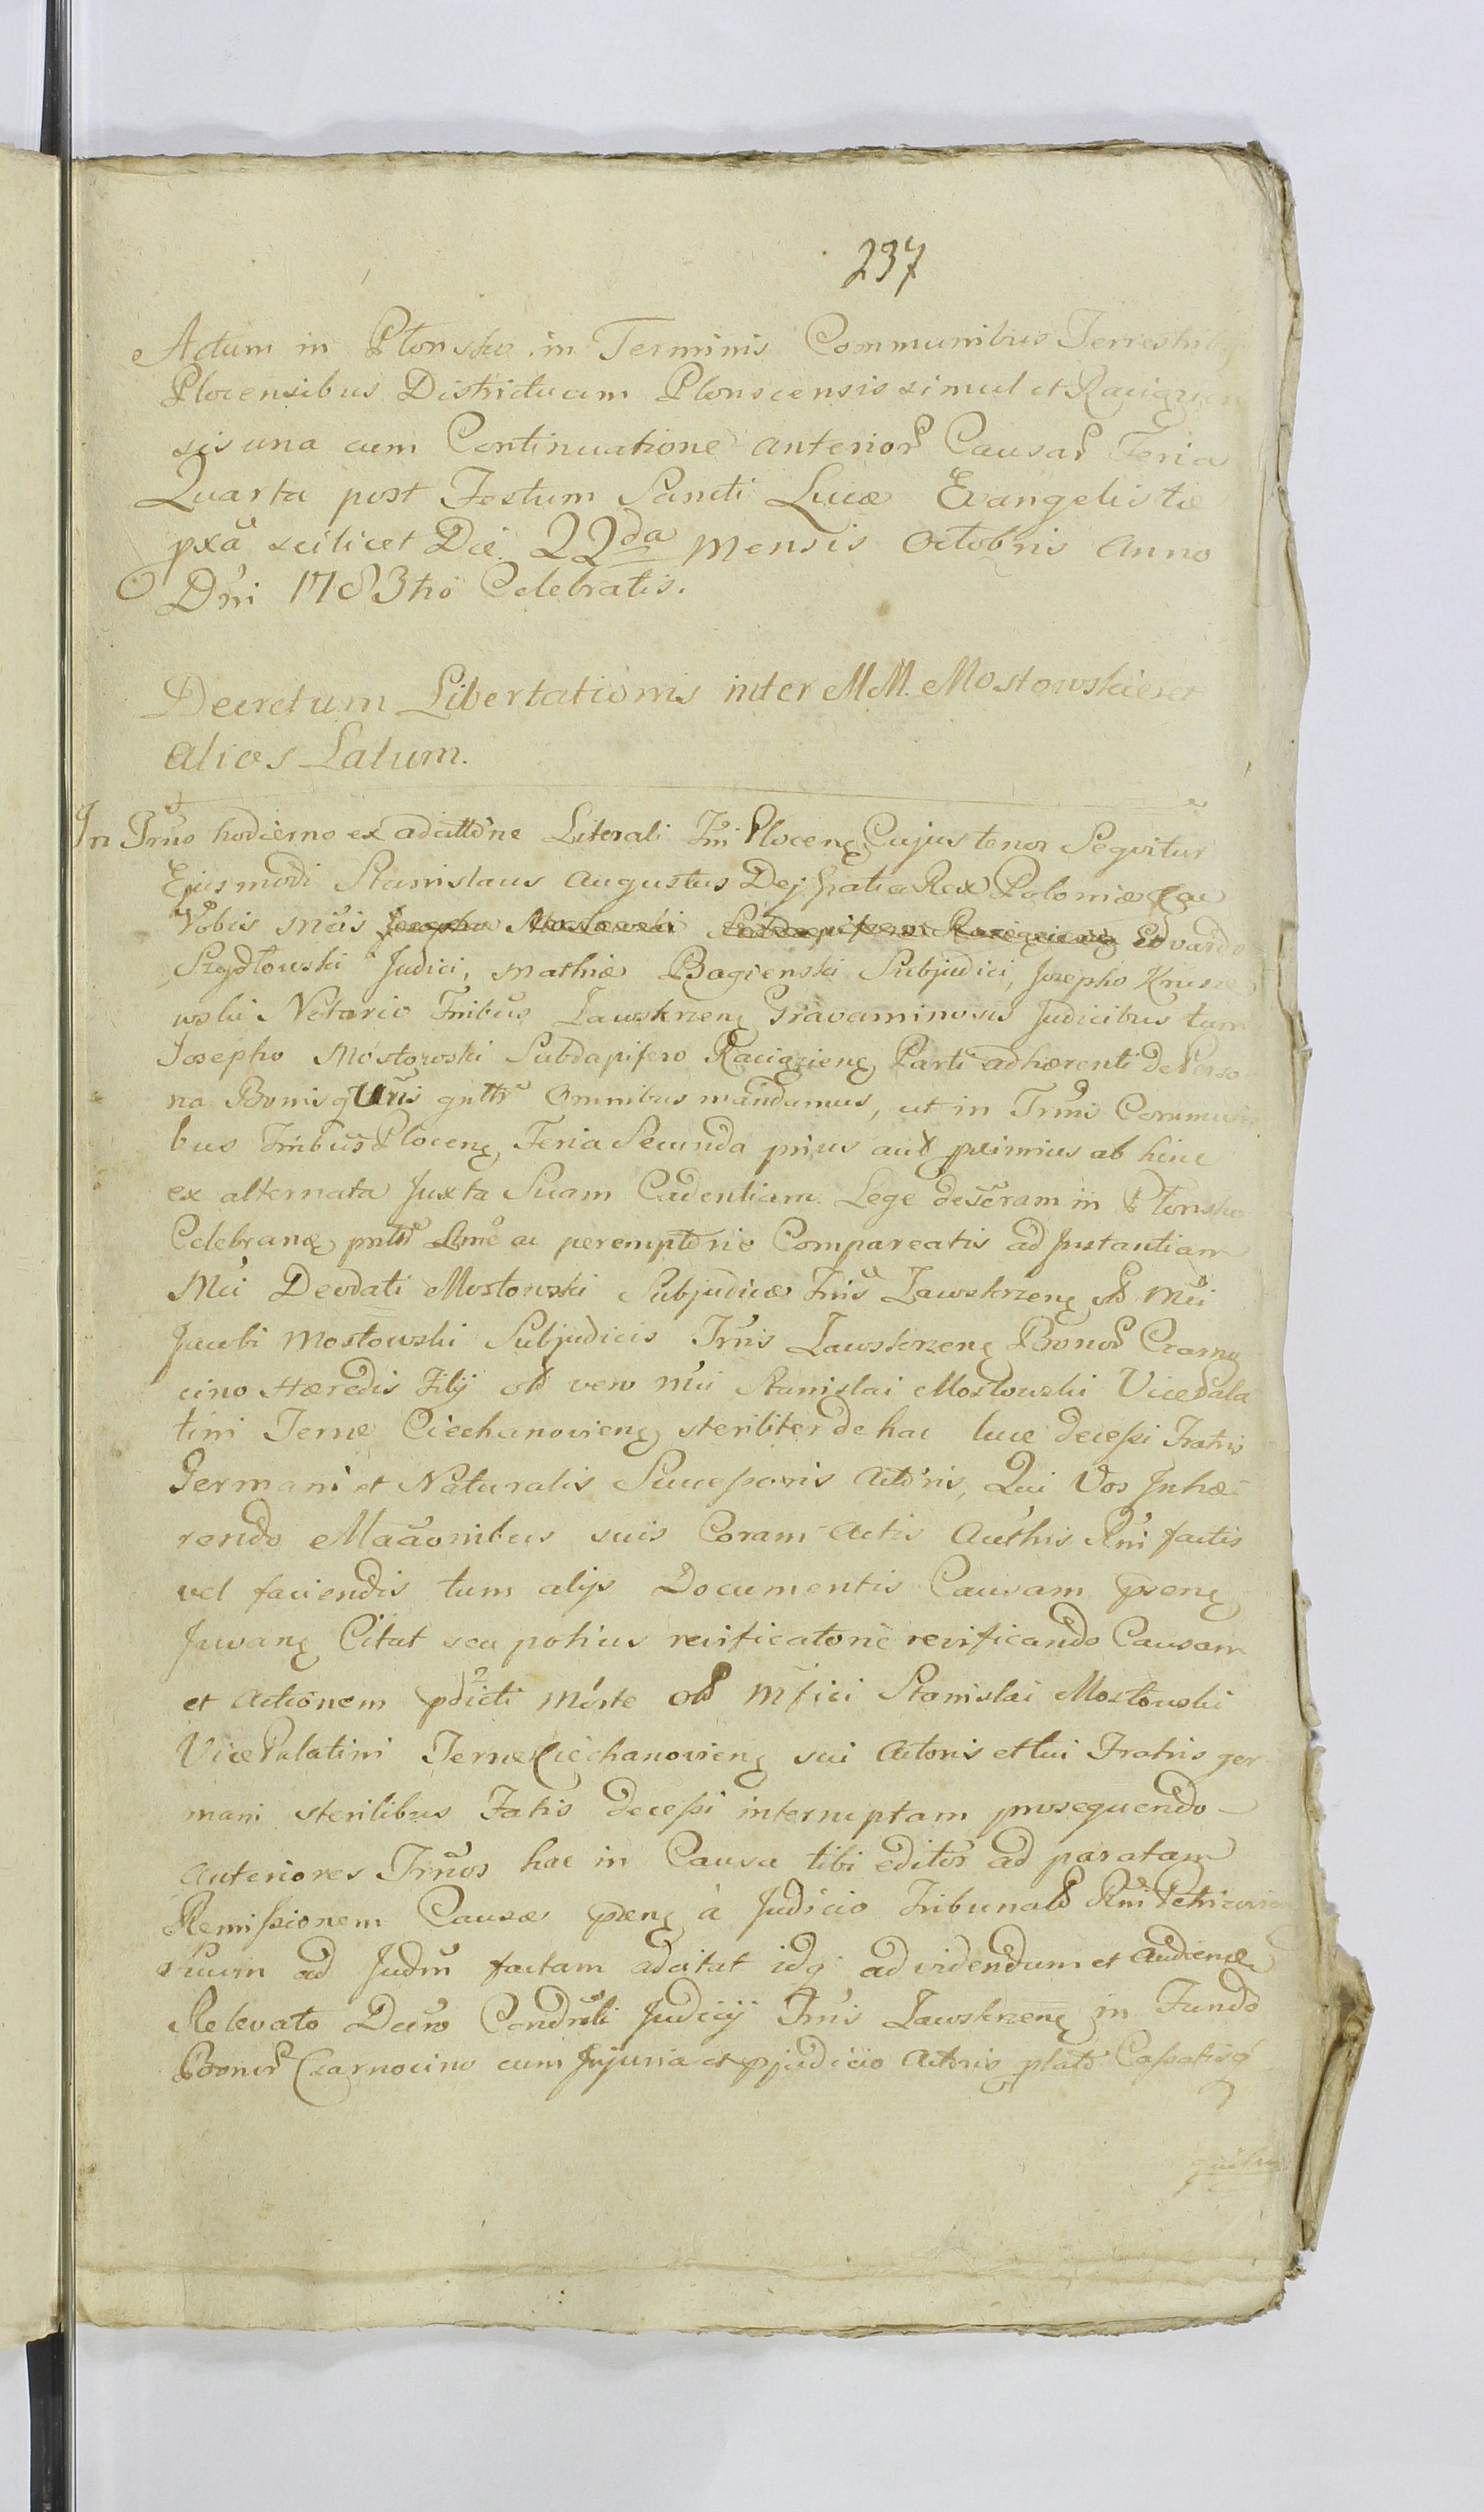 237
Actum in Płonsko in Terminis Communibus Terrestrib
Plocensibus Districtuum Plonscensis simul et Raciązen
sis una cum Continuatione anterior Causar Feria
Quarta post Festum Sancti Lucæ Evangelistæ
pxã scilicet Die 22da Mensis Octobris Anno
Dñi 1783tio Celebratis.
Decretum Libertationis inter MM. Mostowskie et
alios Latum.
In Trño hodierno ex adcittõne Literali Tři Plocenę Cujus tenor Seqvitur
Ejusmodi Stanislaus Augustus Dej Gratia Rex Poloniæ
Vobis Mcis Josepho Mostowski Subdapifero Raciązienę Edvardo
Szydłowski Judici, Mathiæ Bagienski Subjudici, Josepho Krusze
wski Notario Trribus Zawskrzenę Gravaminosis Judicibus tum
Josepho Mostowski Subdapifero Raciązienę Parti adhærenti de Perso
na Bonisq Uris gnttr Omnibus mandamus, ut in Trnis Communi
bus Trribus Plocenę Feria Secunda prius aut pximius ab hinc
ex alternata Juxta Suam Cadentiam Lege descram in Płonsko
Celebranę pnltr Lme ac peremptorie Compareatis ad Instantiam
Mci Deodati Mostowski Subjudicis Trris Zawskrzenę olt Mci
Jacobi Mostowski Subjudicis Trris Zawskrzenę Bonor Czarno
cino Hæredis Filij olt vero Mci Stanislai Mostowski Vice Pala
tini Terræ Ciechanovienę steriliter de hac luce decessi Fratris
Germani et Naturalis Successoris Actoris, Qui Vos Inhæ
rendo Maãonibus suis Coram Actis Authis Rni factis
vel faciendis tum alijs Documentis Causam psenę
Juvanę Citat seu potius reificatorie reificando Causam
et Actionem pdicti Morte olt Mfici Stanislai Mostowski
Vice Palatini Terræ Ciechanovienę sui Actoris et tui Fratris ger
mani sterilibus Fatis decessi interruptam prosequendo
anteriores Trños hac in Causa tibi editos ad paratam
Remissionem Causæ psenę à Judicio Tribunalt Rni Petricovien
Suum ad Judm factam adcitat idq ad videndum et Audiendu
Relevato Decro Condrli Judicij Trris Zawskrzenę in Fundo
Bonor Czarnocino cum Injuria et pjudicio Actoris plato Cassatisq